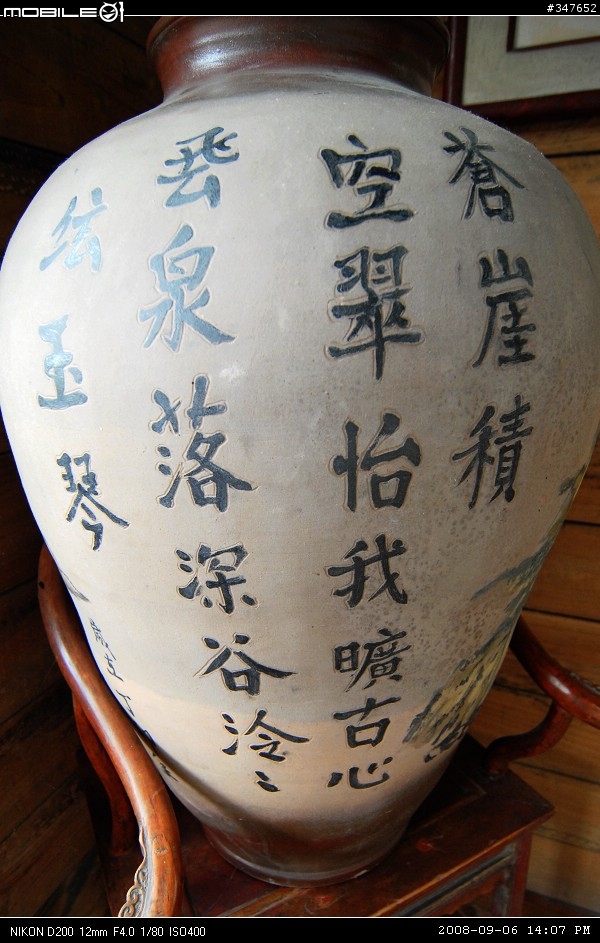 MOBILE01
#347652
蒼崖積
空翠怡我曠古心
飛泉落深谷泠〻
絃玉琴
NIKON D200 12mm F4.0 1/80 ISO400
2008-09-06 14:07 PM